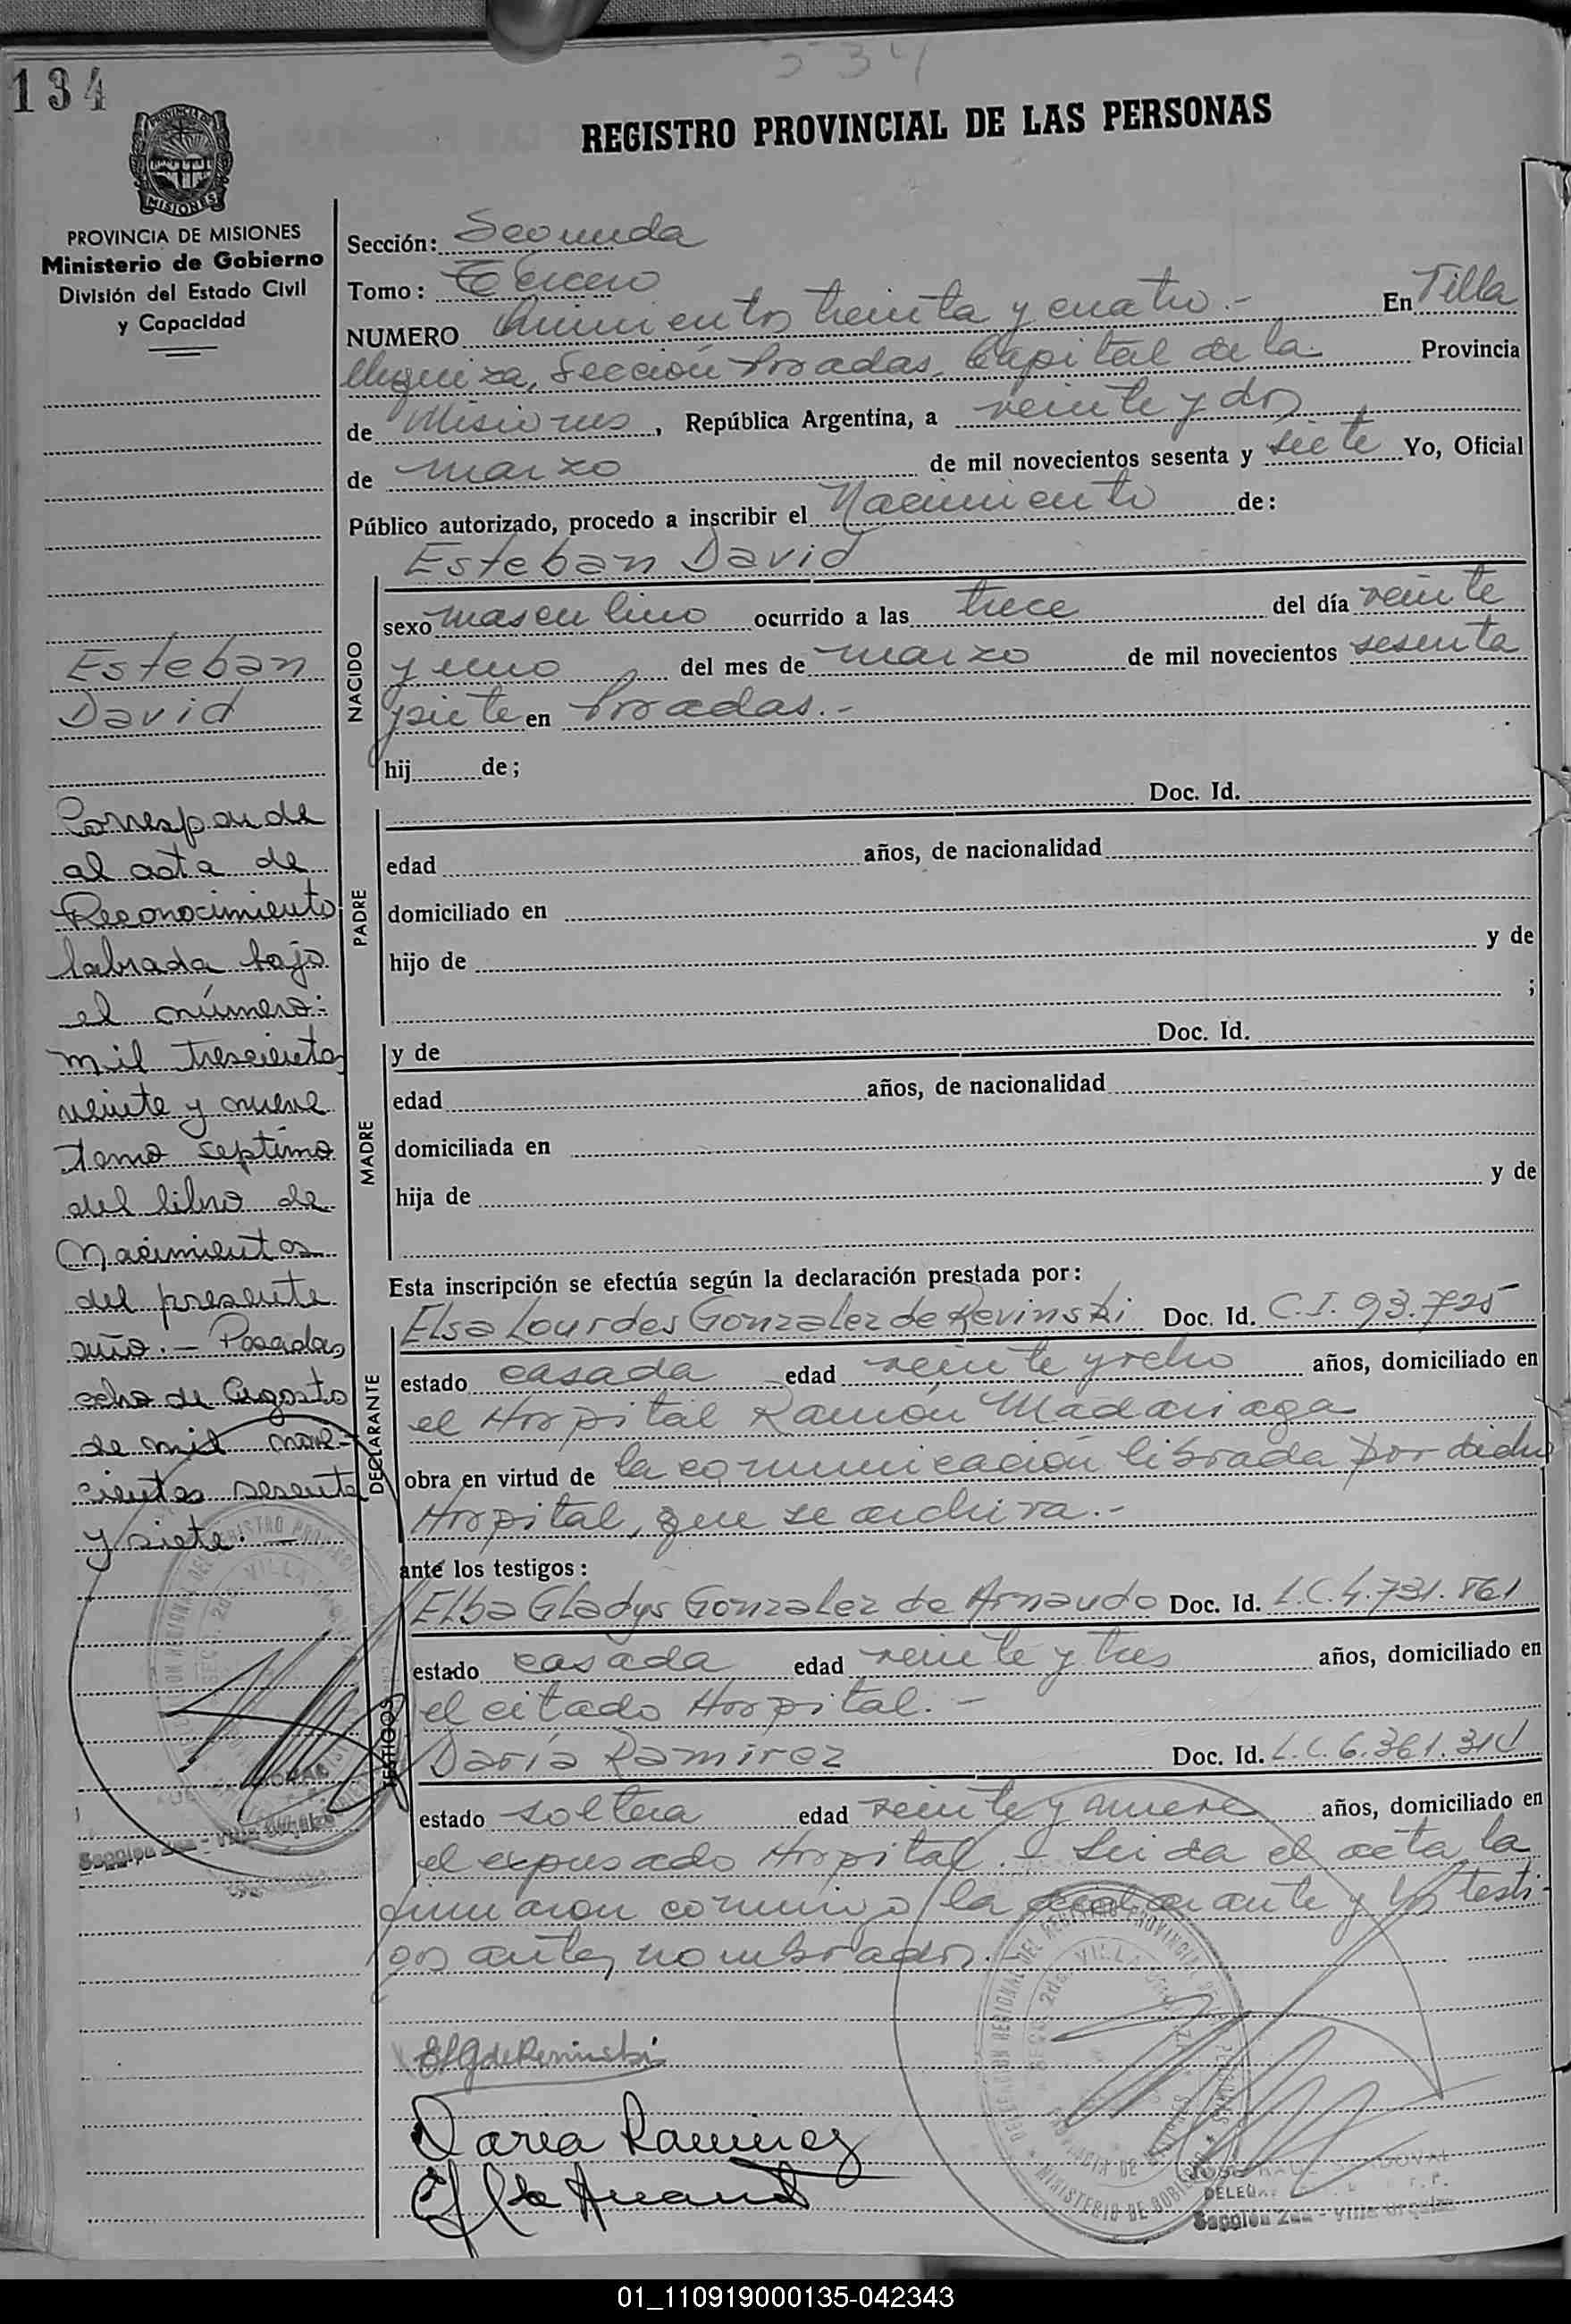 134
534
REGISTRO PROVINCIAL DE LAS PERSONAS
PROVINCIA DE MISIONES
Ministerio de Gobierno
División del Estado Civil
y Capacidad
Sección: Segunda
Tomo: Tercero
NUMERO Quinientos treinta y cuatro.- En Villa
Urquiza, Sección Posadas, Capital de la Provincia
de Misiones, República Argentina, a veinte y dos
de marzo de mil novecientos sesenta y siete Yo, Oficial
Público autorizado, procedo a inscribir el Nacimiento de:
Esteban David
NACIDO
sexo masculino ocurrido a las trece del día veinte
y uno del mes de marzo de mil novecientos sesenta
y siete en Posadas.-
hij de;
Esteban
David
Corresponde
al acta de
Reconocimiento
labrada bajo
el número:
mil trescientos
veinte y nueve
tomo septimo
del libro de
Nacimientos
del presente
año.- Posadas
ocho de Agosto
de mil nove-
cientos sesenta
y siete.-
PADRE
Doc. Id.
edad años, de nacionalidad
domiciliado en
hijo de y de
;
MADRE
y de Doc. Id.
edad años, de nacionalidad
domiciliada en
hija de y de
Esta inscripción se efectúa según la declaración prestada por:
DECLARANTE
Elsa Lourdes Gonzalez de Revinski Doc. Id. C.I. 93.725
estado casada edad veinte y ocho años, domiciliado en
el Hospital Ramón Madariaga
obra en virtud de la comunicación librada por dicho
Hospital, que se archiva.-
ante los testigos:
TESTIGOS
Elba Gladys Gonzalez de Arnaudo Doc. Id. L.C. 4.731.861
estado casada edad veinte y tres años, domiciliado en
el citado Hospital.-
Daría Ramirez Doc. Id. L.C. 6.361.314
estado soltera edad veinte y nueve años, domiciliado en
el expresado Hospital.- Leida el acta, la
firmaron conmigo la declarante y los testi-
gos antes nombrados.
ELG de Revinski
Daria Ramirez
DELEGACION REGIONAL DEL REGISTRO PROVINCIAL DE
SECC. 2da. VILLA URQUIZA
PROVINCIA DE MISIONES
MINISTERIO DE GOBIERNO
SANDOVAL
Sección 2da - Villa Urquiza
Sección 2da - Villa Urquiza
01_110919000135-042343